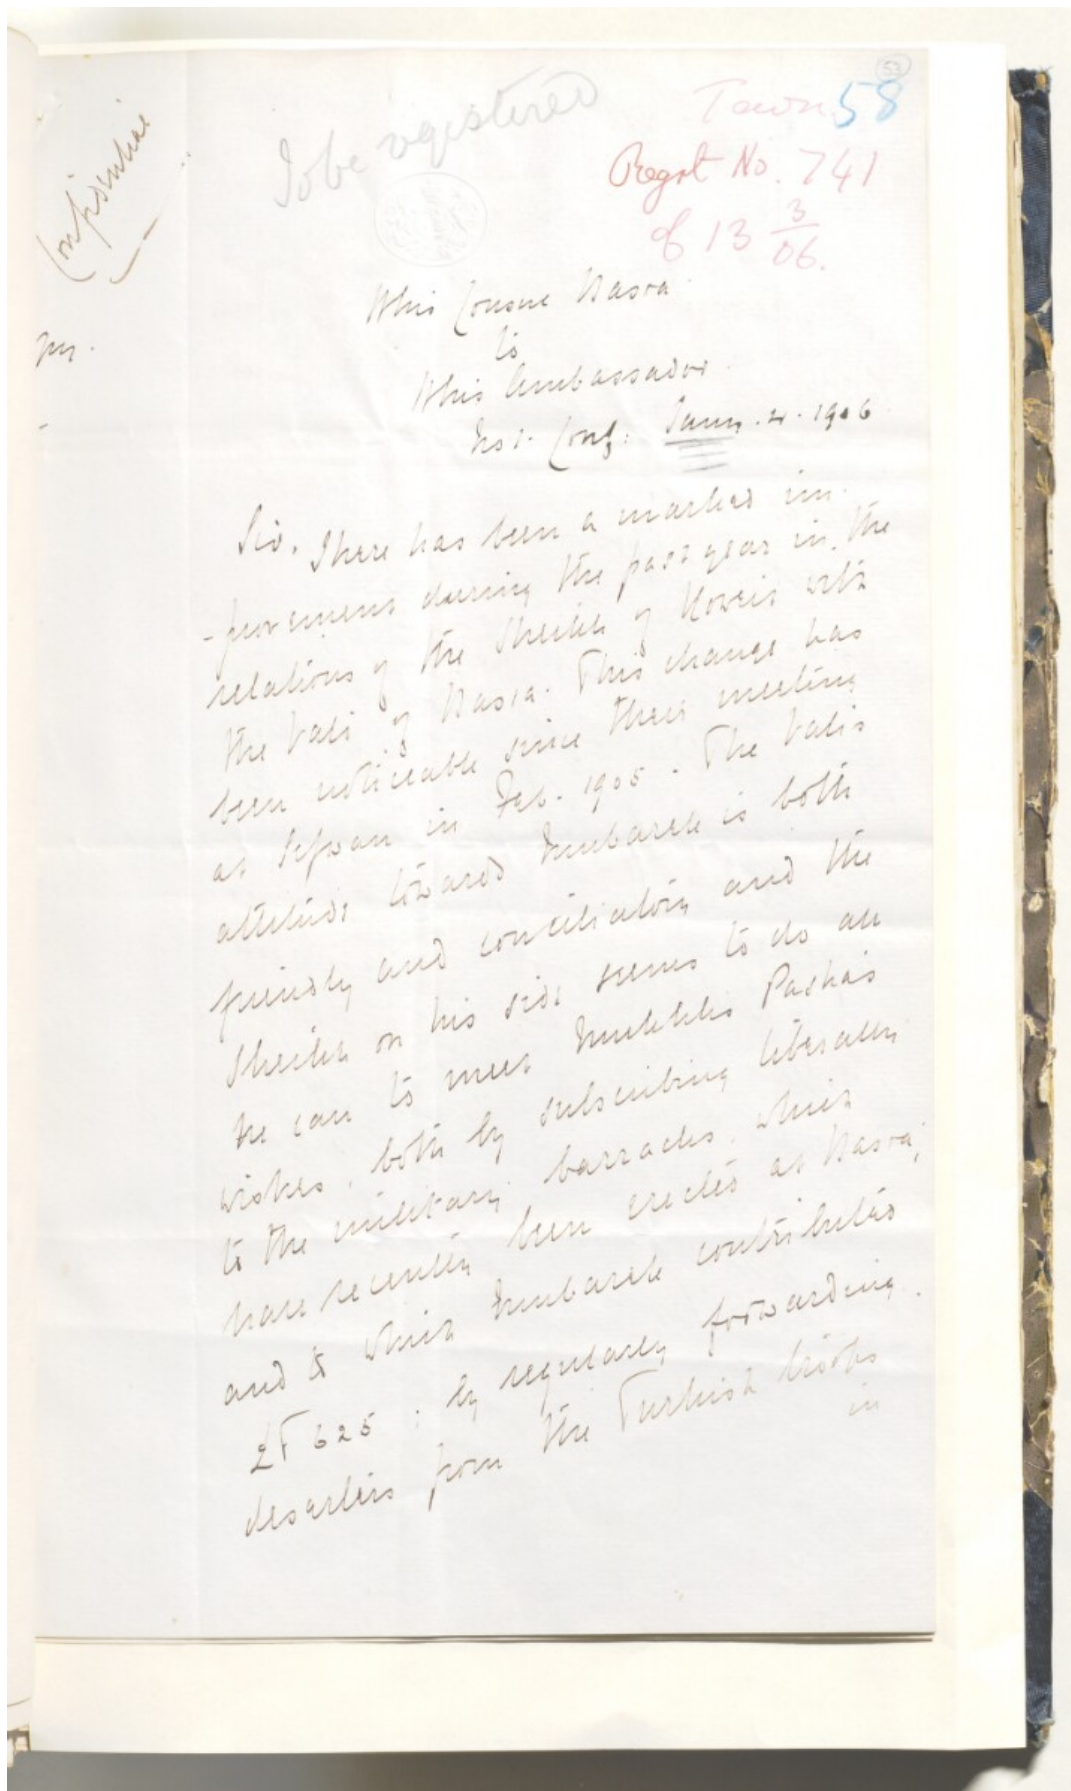 53
58
To be registered
Confidential
Town
Regst No. 741
of 13 3/06.
HMs Consul Basra
to
HMs Ambassador
No 1. Conf: Jany. 4. 1906
Sir, There has been a marked im-
-provement during the past year in the
relations of the Sheikh of Koweit with
the Vali of Basra. This change has
been noticeable since their meeting
at Sefwan in Feb. 1905. The Vali's
attitude towards Mubarak is both
friendly and conciliatory and the
Sheikh on his side seems to do all
he can to meet Mukhlis Pasha's
wishes, both by subscribing liberally
to the military barracks, which
have recently been erected at Basra,
and to which Mubarak contributed
£T 625; by regularly forwarding
deserters from the Turkish troops
in